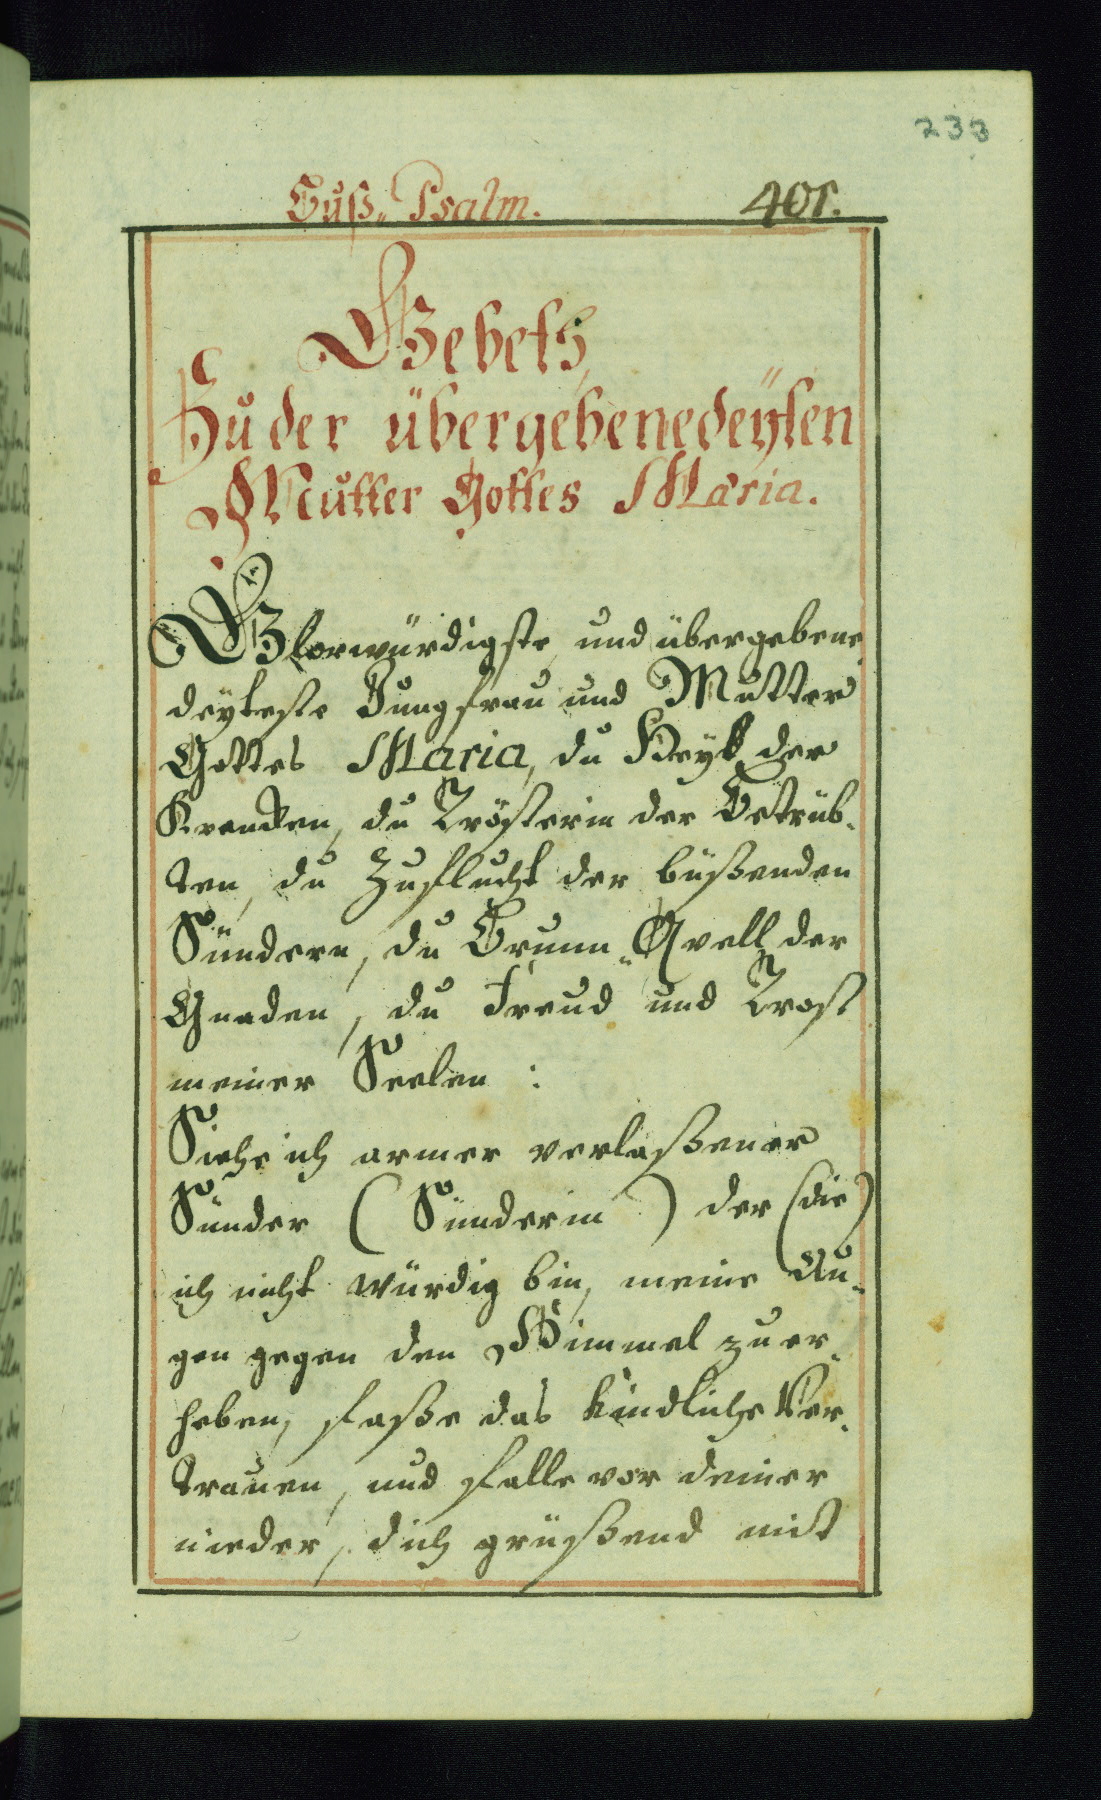 233
Buß-Psalm. 401.
Gebeth,
Zu der übergebenedeÿten
Mutter Gottes Maria.
Glorwürdigste, und übergebene-
deÿteste Jungfrau und Mutter
Gottes Maria, du Heÿl der
Krancken, du Trösterin der Betrüb-
ten, du Zuflucht der büßenden
Sündern, du Brunn-Qvell der
Gnaden, du Freud und Trost
meiner Seelen:
Siehe ich armer verlaßener
Sünder (Sünderin) der (die)
ich nicht würdig bin, meine Au-
gen gegen den Himmel zu er-
heben, faße das kindliche Ver-
trauen, und falle vor deiner
nieder, dich grüßend mit